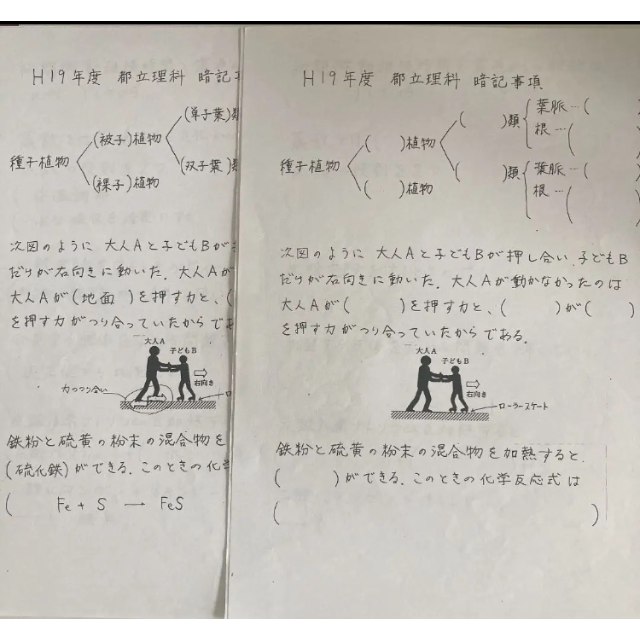 H19年度 都立理科 暗記
種子植物
(被子)植物
(裸子)植物
(単子葉)
(双子葉)
次図のように 大人Aと子どもBが
だけが右向きに動いた. 大人Aが
大人Aが(地面 )を押す力と、(
を押す力がつり合っていたからで
大人A
子どもB
右向き
力のつり合い
鉄粉と硫黄の粉末の混合物を
(硫化鉄)ができる. このときの化学
( Fe + S → FeS
H19年度 都立理科 暗記事項
種子植物
( )植物
( )植物
( )類
( )類
葉脈…( )
根…( )
葉脈…( )
根…( )
次図のように 大人Aと子どもBが押し合い、子どもB
だけが右向きに動いた. 大人Aが動かなかったのは
大人Aが( )を押す力と、( )が( )
を押す力がつり合っていたからである.
大人A
子どもB
右向き
ローラースケート
鉄粉と硫黄の粉末の混合物を加熱すると、
( )ができる. このときの化学反応式は
( )